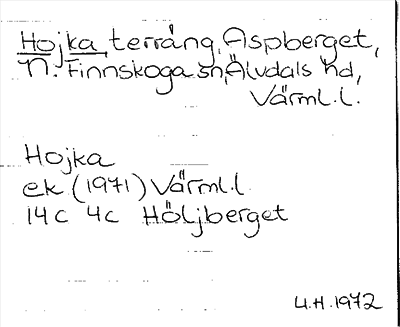 Hojka, terräng, Aspberget,
N. Finnskoga sn, Älvdals hd,
Värml. l.
Hojka
ek (1971) Värml. l
14c 4c Höljberget
U.H. 1972